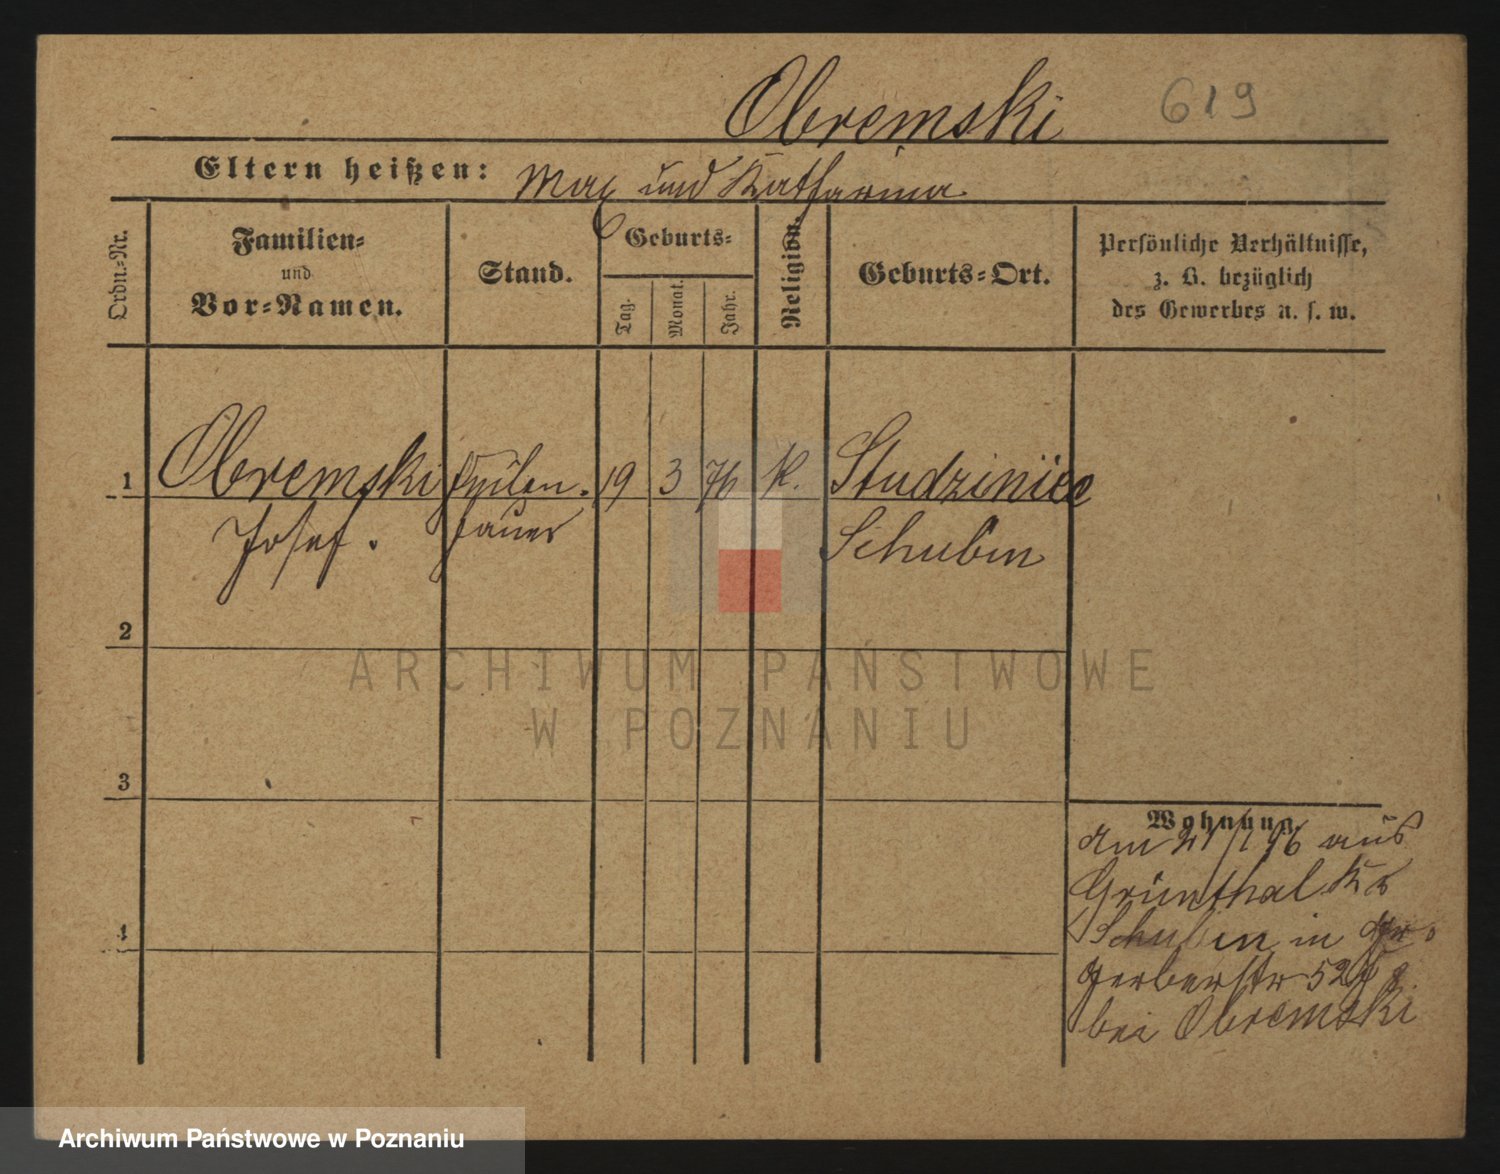 Obremski 619
Eltern heißen: Max und Katharina.
Ordn.-Nr.
Familien-
und
Vor-Namen.
Stand.
Geburts-
Tag.
Monat.
Jahr.
Religion.
Geburts-Ort.
Persönliche Verhältnisse,
z. B. bezüglich
des Gewerbes u. s. w.
1 Obremski 19 3 76 K. Studziniec
Josef. hauer Schubin
2
3
4
Wohnung
am 21/1 96 aus
Grünthal Kr
Schubin in Gr.
Gerberstr 52
bei Obremski
ARCHIWUM PAŃSTWOWE
W POZNANIU
Archiwum Państwowe w Poznaniu